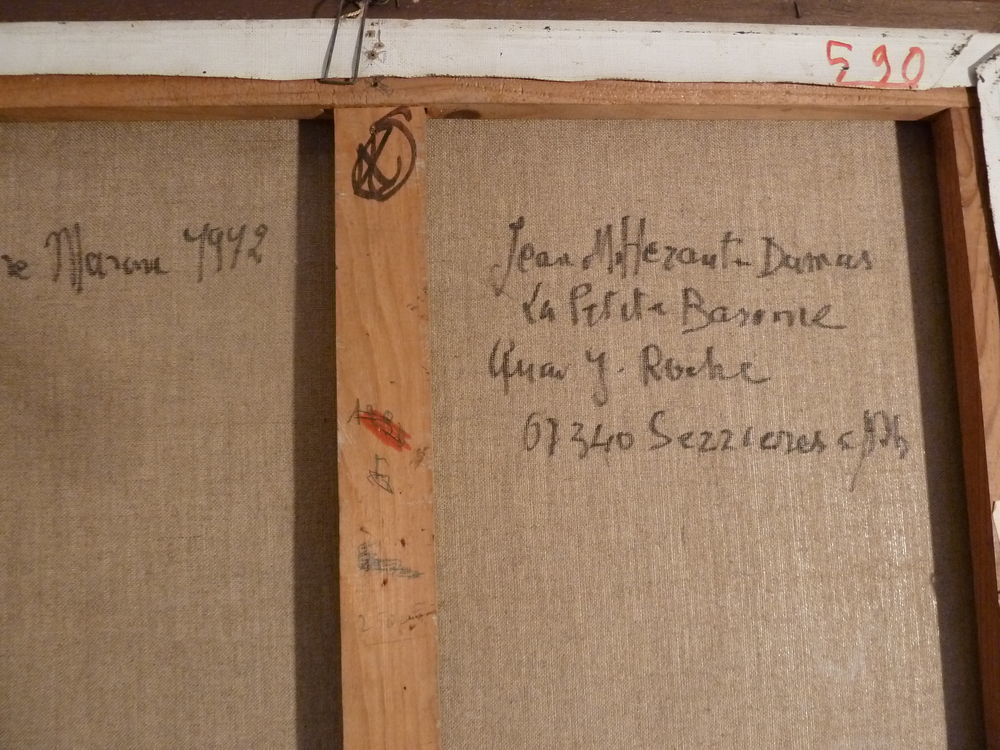 590
re Marou 1972
Jean M. Herant-Dumas
La Petite Baronne
Quai J. Roche
07340 Serrieres s/Rh